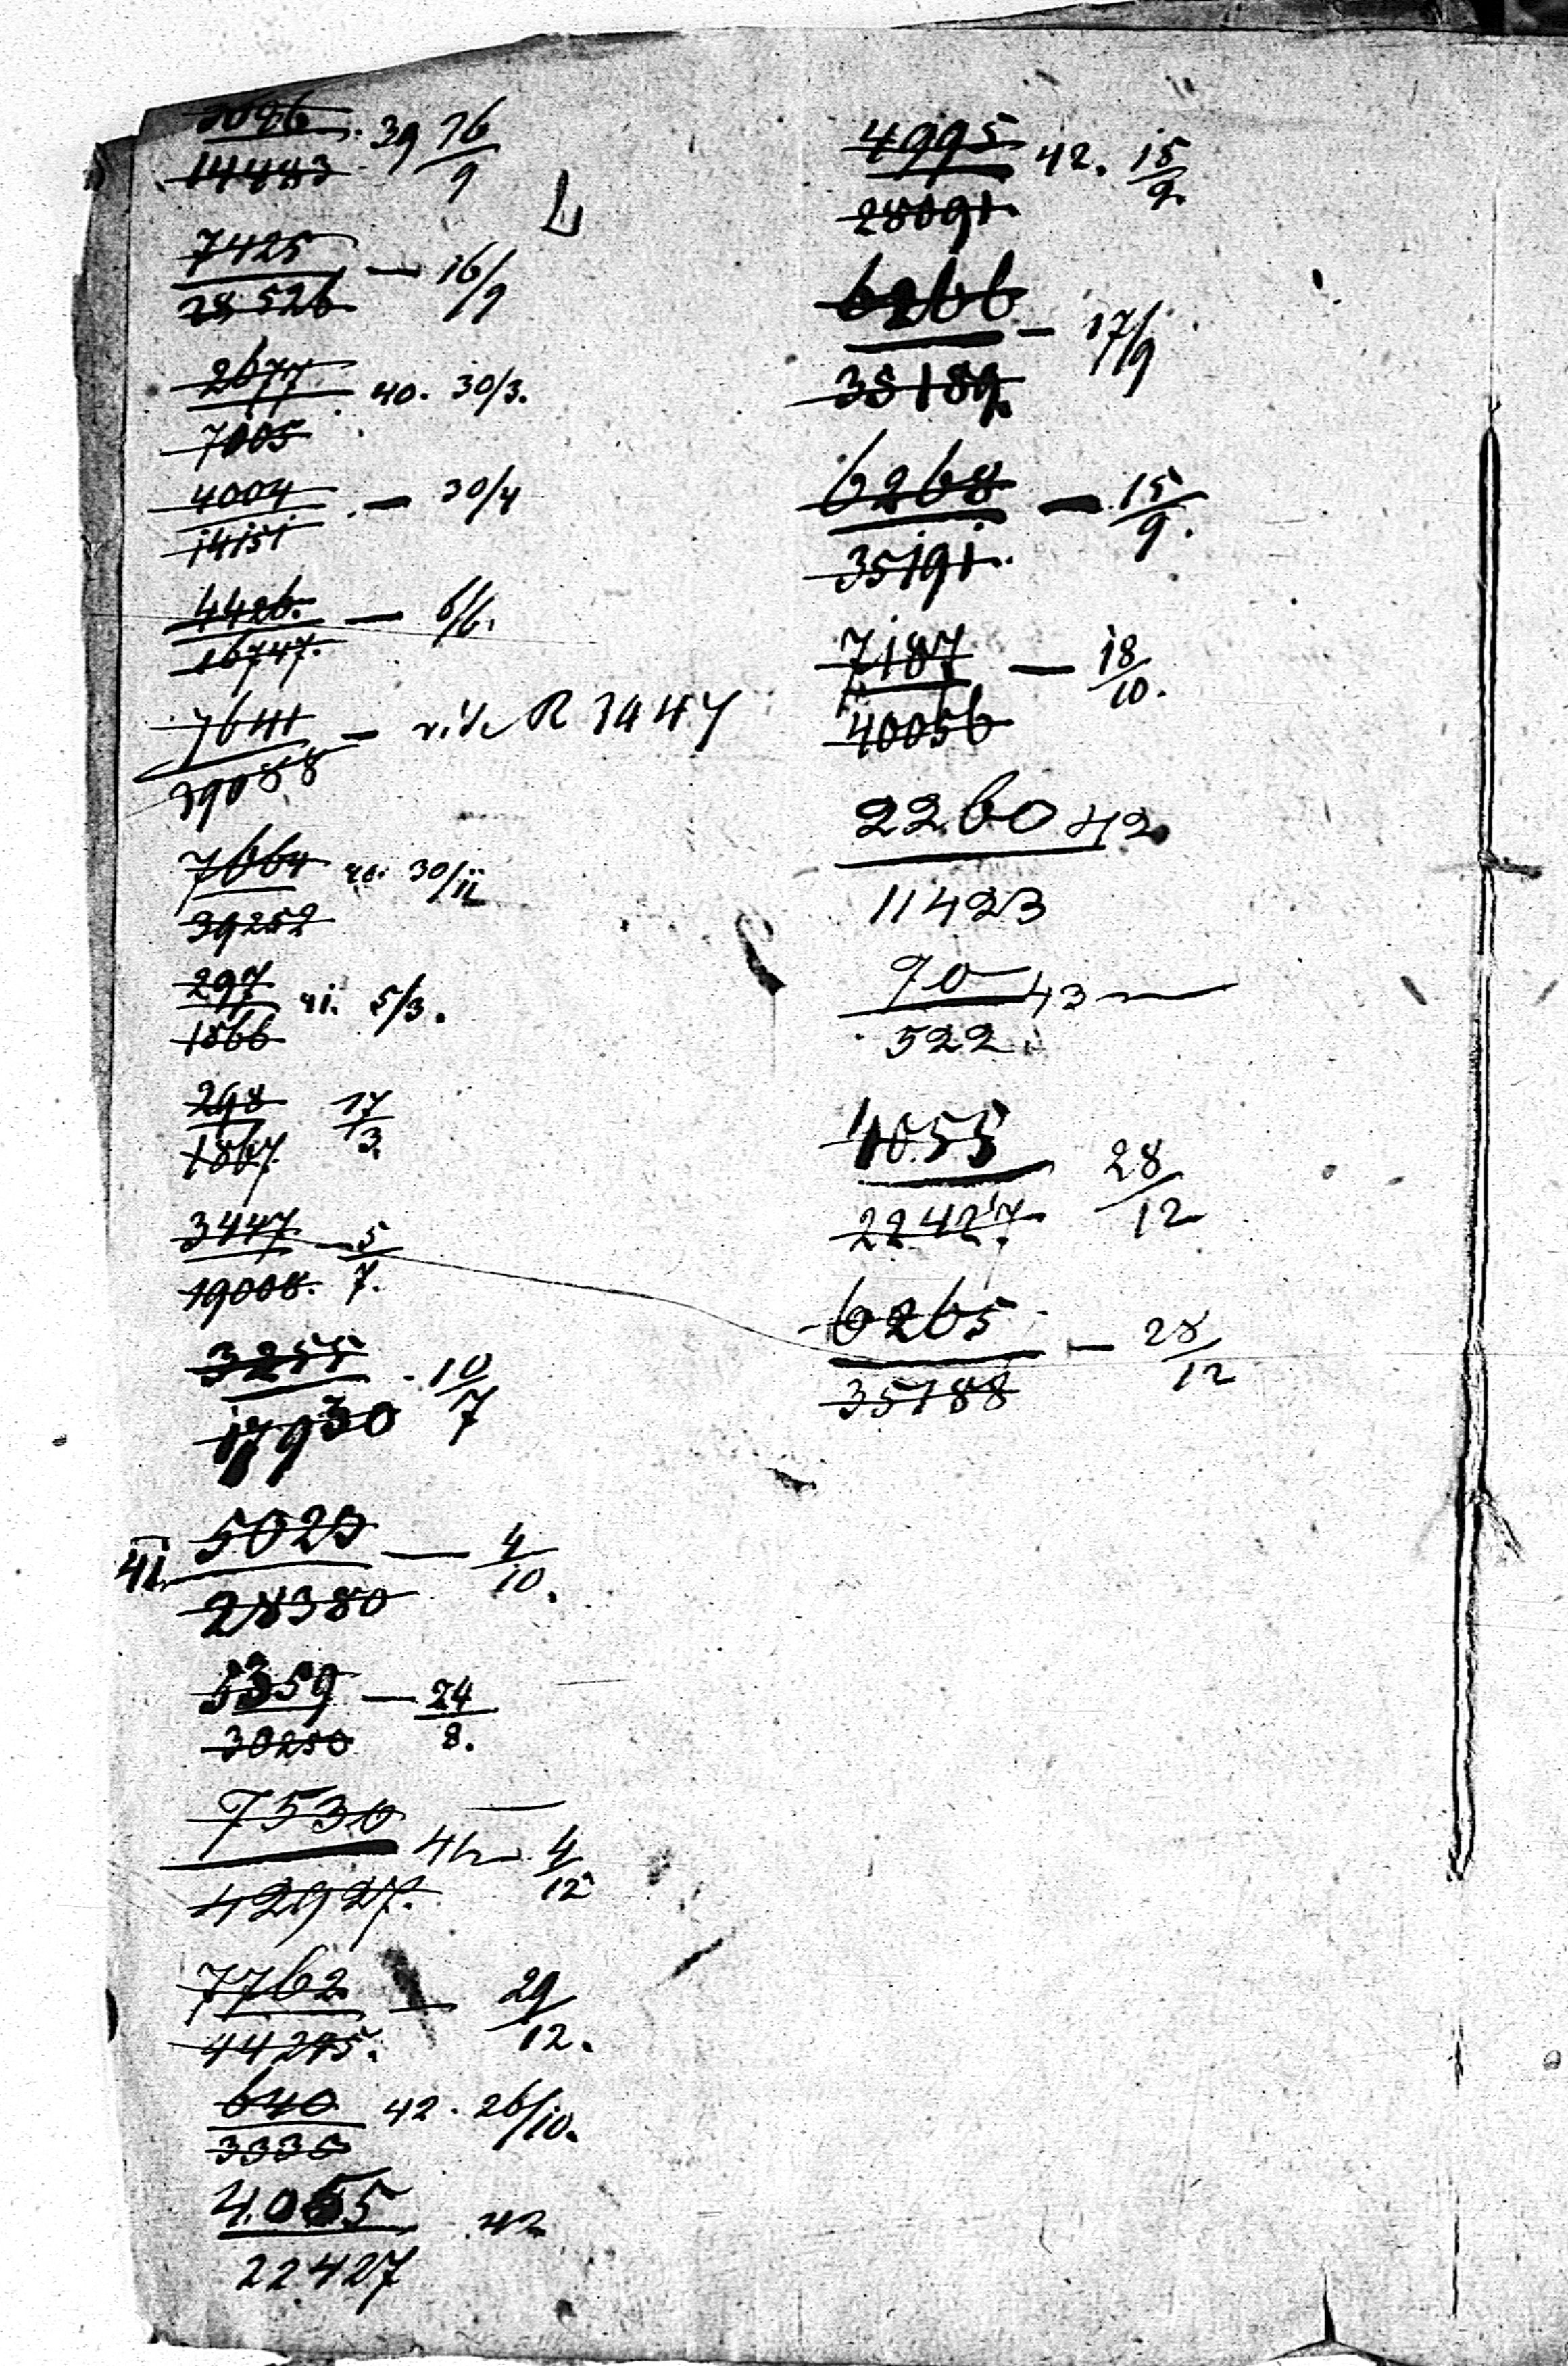 14443 39 16/9
7425 — 16/9
28526
2677 40. 30/3.
7005
4004 — 30/4
14151
4426. — 6/6.
16747.
7641 — vide R 3447
39088
7664 40. 30/11
39252
297 41. 5/3.
1866
298 17/3.
1867.
3447. — 5/7.
19008.
3255 . 10/7
17930
41. 5023 — 4/10.
28380
5359 — 24/8.
30250
7530 — 4/12
42927.
7762 — 29/12.
44295.
640 42. 26/10.
3335
4055 42
22427
4995 42. 15/9.
28091.
6266 — 17/9
35189.
6268 — 15/9.
35191.
7187 — 18/10.
40056
2260 42
11423
90 43 —
522.
4055 28/12
22427.
6265 — 28/12
35188